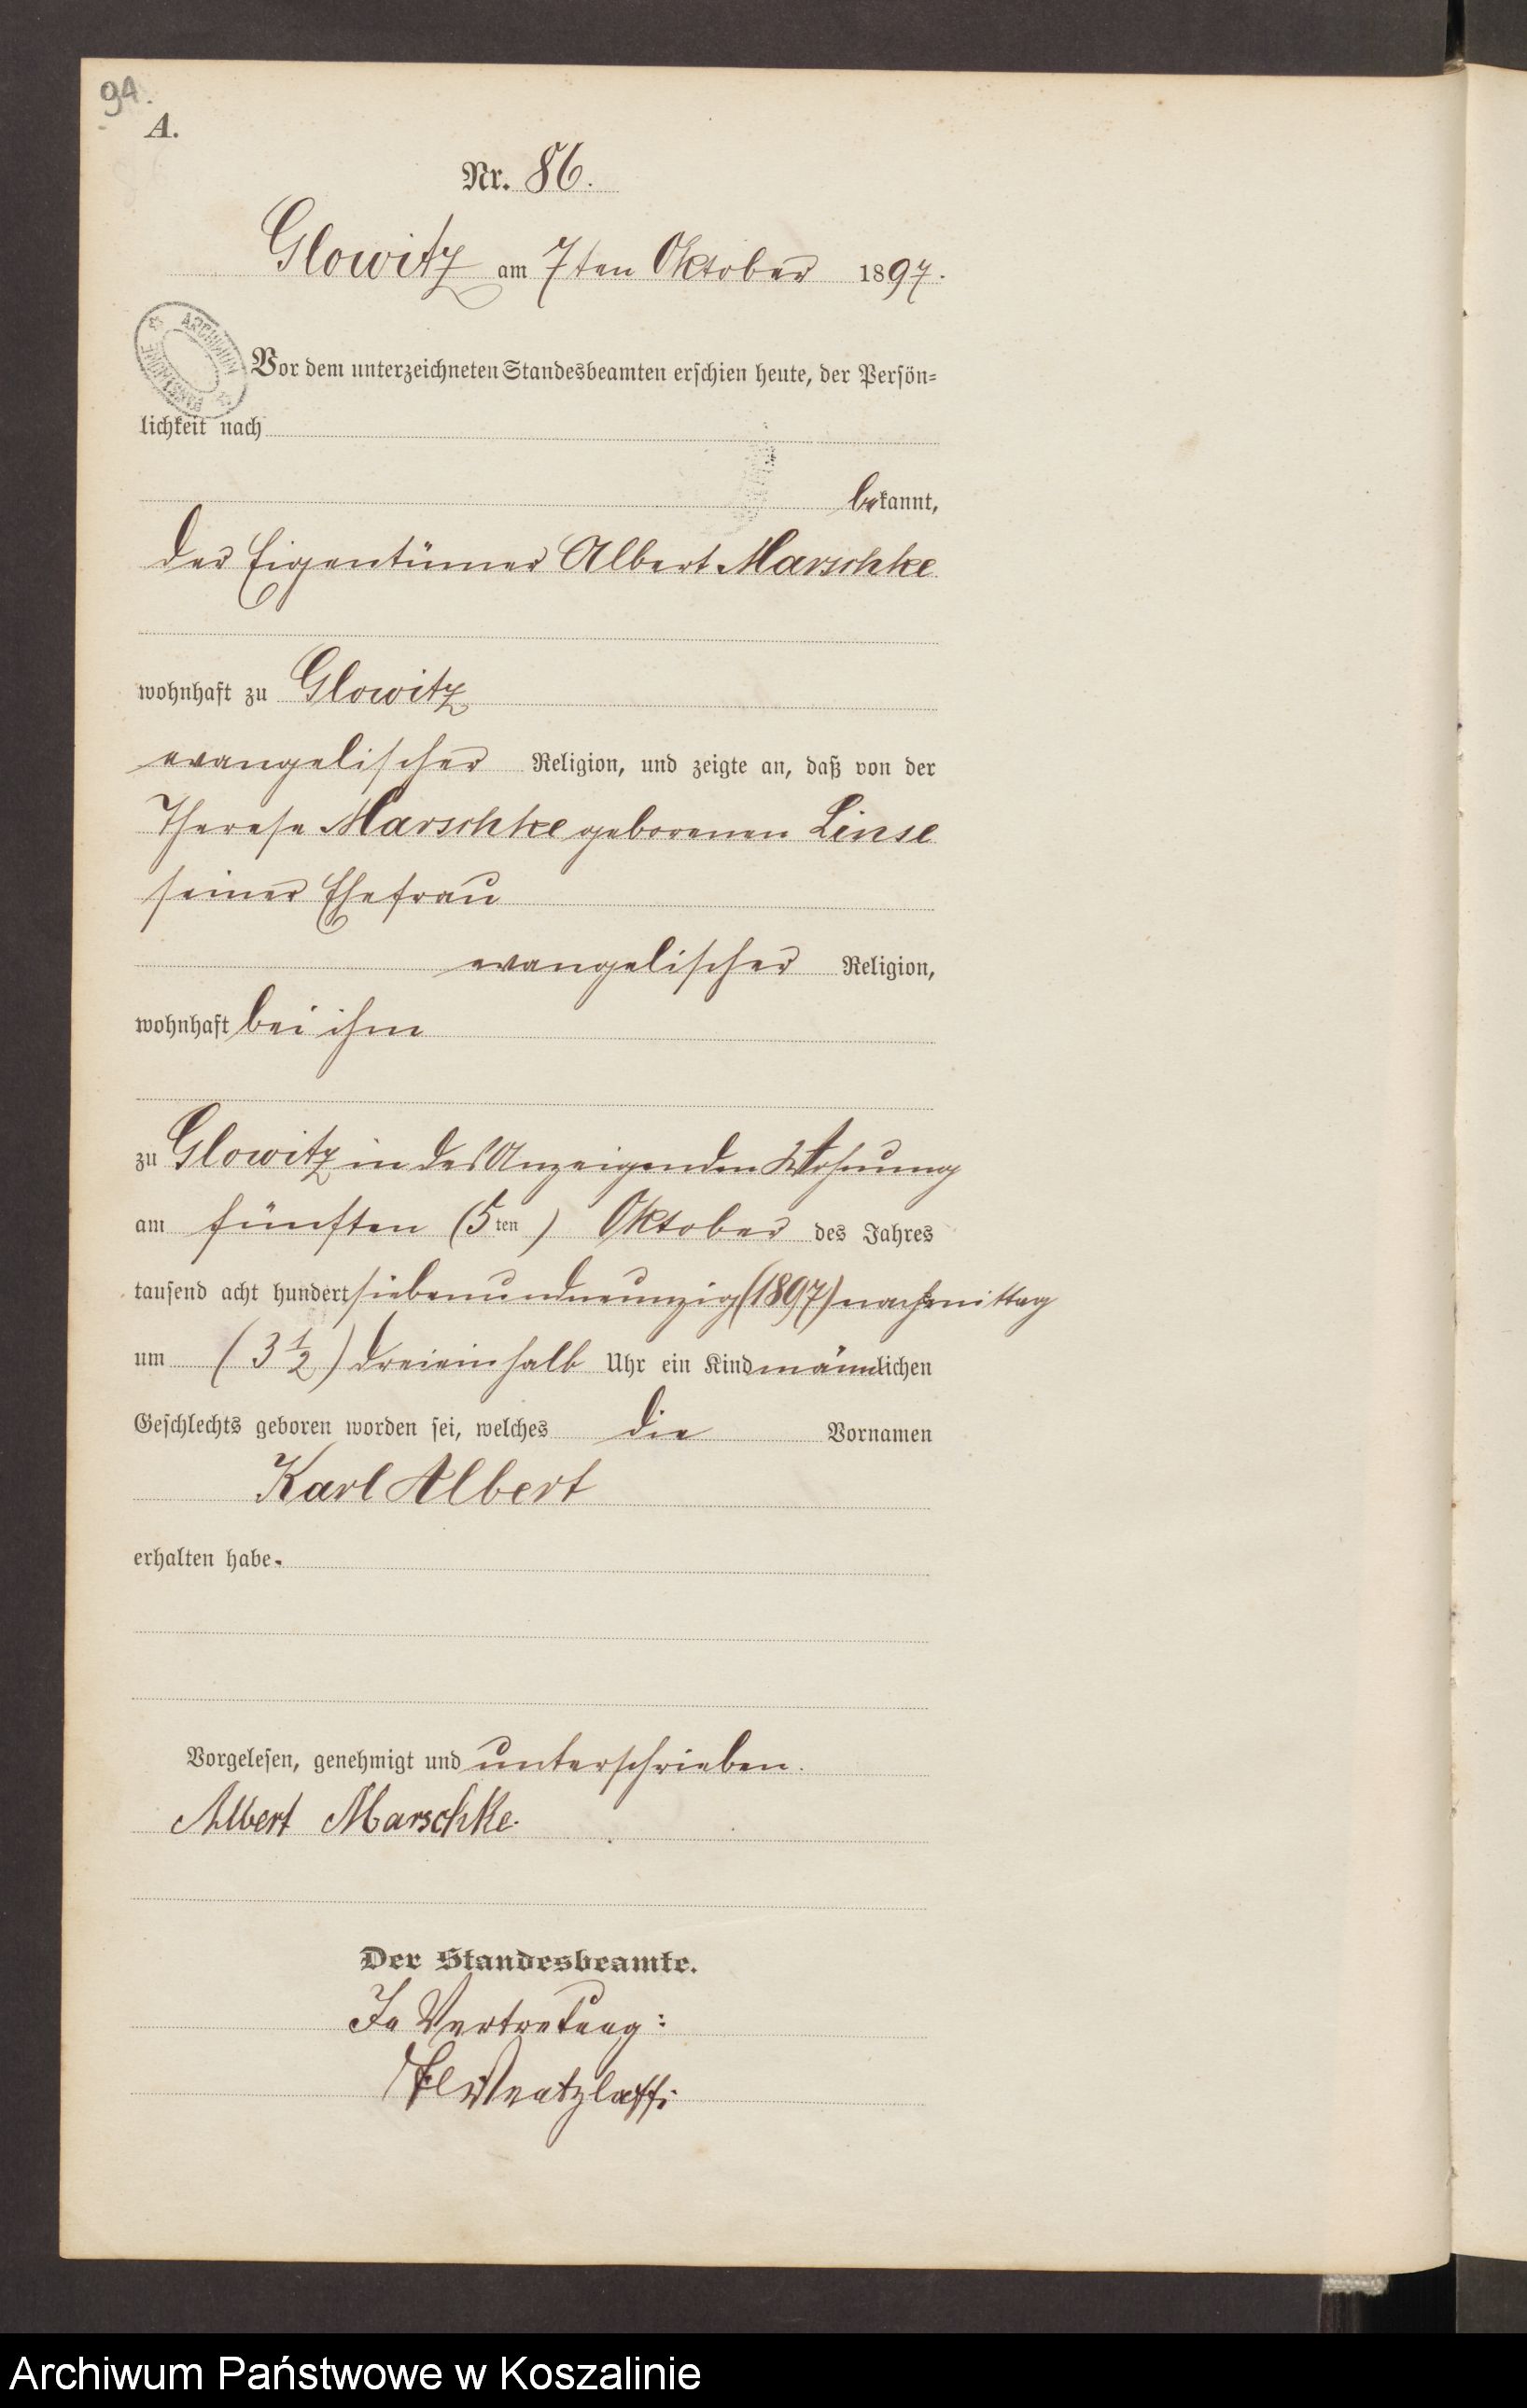 94.
A.
Nr. 86.
Glowitz am 7ten Oktober 1897.
Vor dem unterzeichneten Standesbeamten erschien heute, der Persön=
lichkeit nach
bekannt,
der Eigentümer Albert Marschke
wohnhaft zu Glowitz
evangelischer Religion, und zeigte an, daß von der
Therese Marschke geborenen Linse
seiner Ehefrau
evangelischer Religion,
wohnhaft bei ihm
zu Glowitz in des Anzeigenden Wohnung
am fünften (5ten) Oktober des Jahres
tausend acht hundert siebenundneunzig (1897) nachmittag
um (3 1/2) dreieinhalb Uhr ein Kind männlichen
Geschlechts geboren worden sei, welches die Vornamen
Karl Albert
erhalten habe.
Vorgelesen, genehmigt und unterschrieben.
Albert Marschke.
Der Standesbeamte.
In Vertretung:
Archiwum Państwowe w Koszalinie